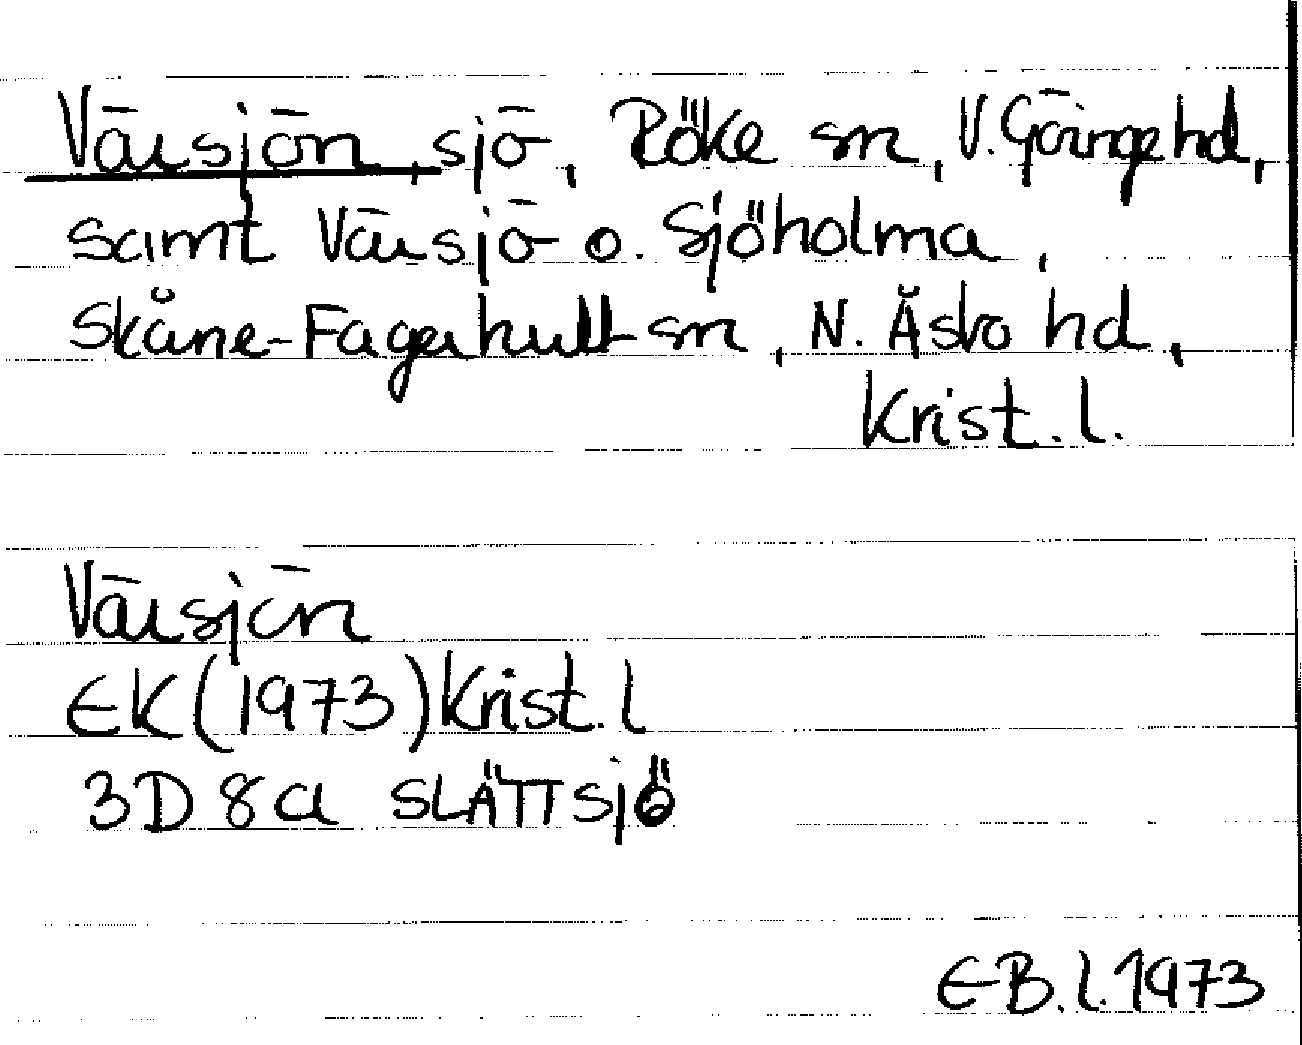 Värsjön, sjö, Röke sn, V. Göinge hd,
samt Värsjö o. Sjöholma,
Skåne-Fagerhult sn, N. Åsbo hd,
Krist. l.
Värsjön
EK (1973) Krist. l
3D 8a SLÄTTSJÖ
EB. l. 1973